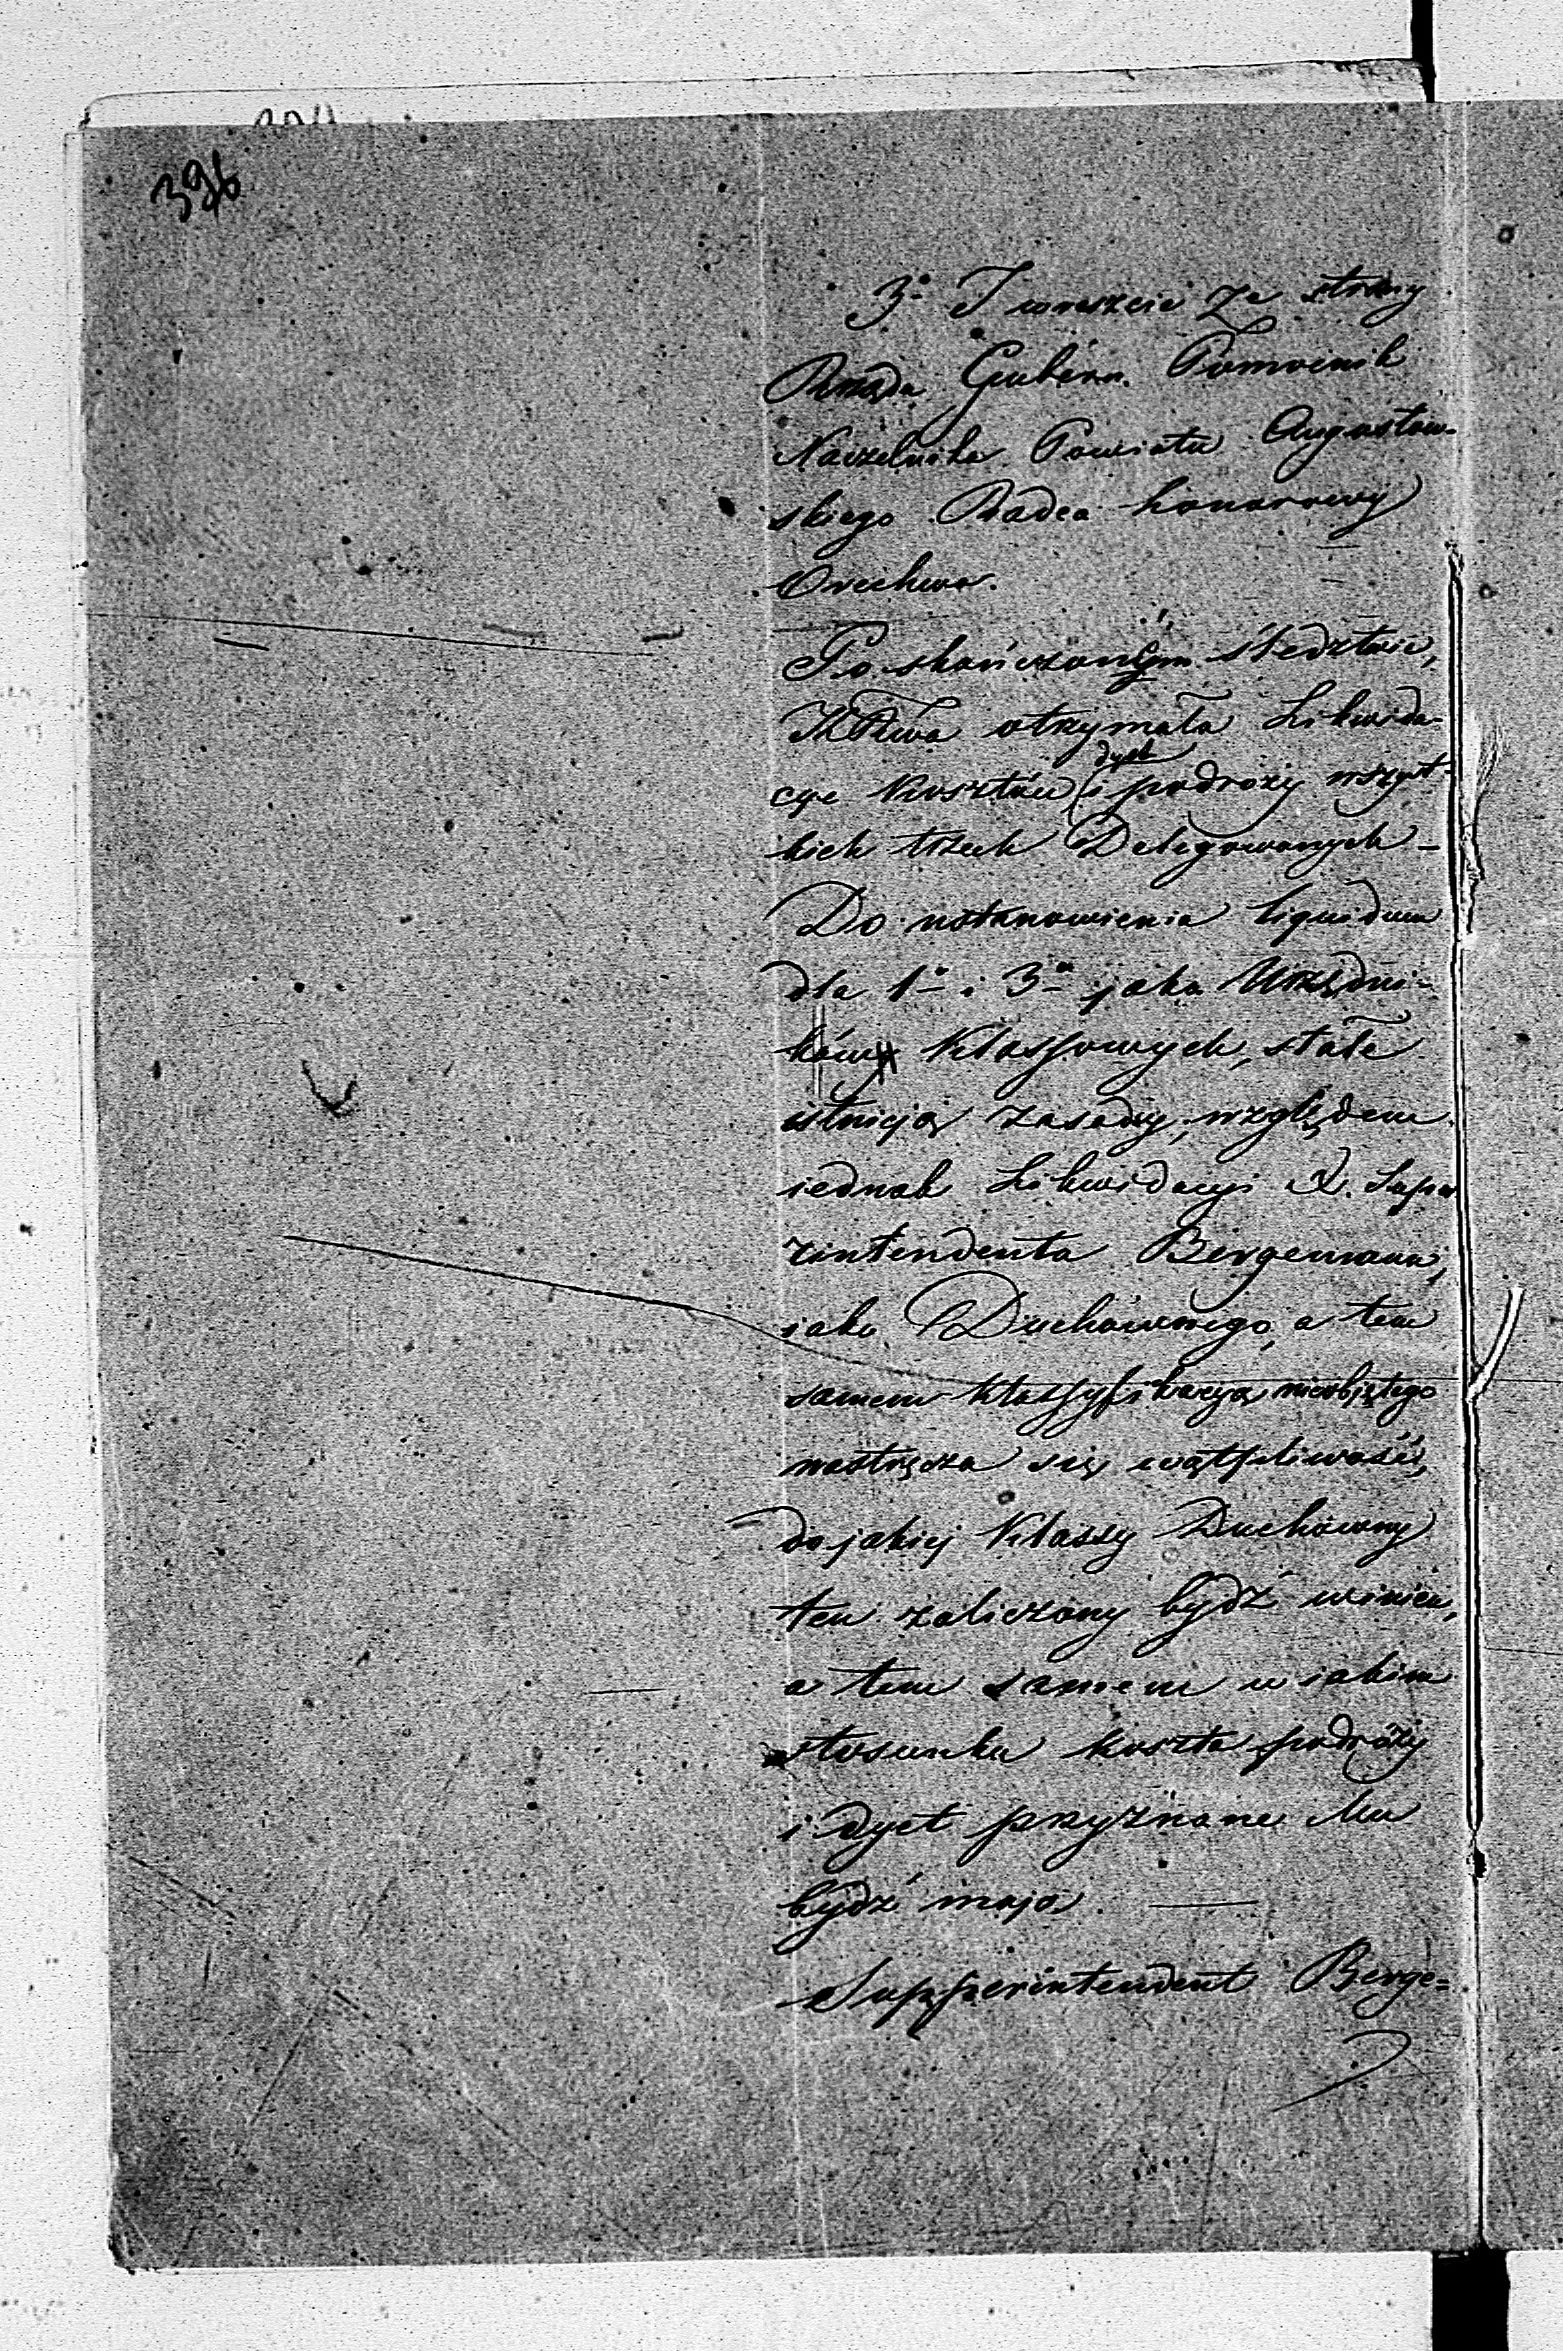 396
3o I wreszcie ze strony
Rządu Gubern. Pomocnik
Naczelnika Powiatu Augustow-
skiego Radca honorowy
Po skończonym śledztwie,
otrzymała Likwida-
cye kosztów dyet i podroży wszyst-
kich trzech Delegowanych –
Do ustanowienia liquidum
dla 1o i 3o jako Urzędni-
ków Klassowych, stałe
istnieją zasady, względem
iednak Likwidacyi X. Supe
rintendenta Bergemana,
iako Duchównego, a tem
samem klassyfikacyą nieobjętego
nastręcza się wątpliwość,
do jakiej Klassy Duchówny
ten zaliczony bydź winien,
a tem samem w iakim
stosunku koszta podróży
i dyet przyznane Mu
bydź mają.
Supperintendent Berge-